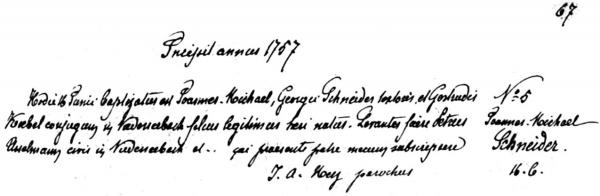 67
Præfuit annus 1757
Hodie 16 Junii baptizatus est Joannes-Michael, Georgii Schneider textoris, et Gertrudis
Koebel conjugum in Niedererbach filius legitimus heri natus. Levantes fuere Petrus
civis in Niedererbach et .. qui præsente patre mecum subscripsere
J. A. parochus
No 5
Joannes-Michael
Schneider.
16. 6.